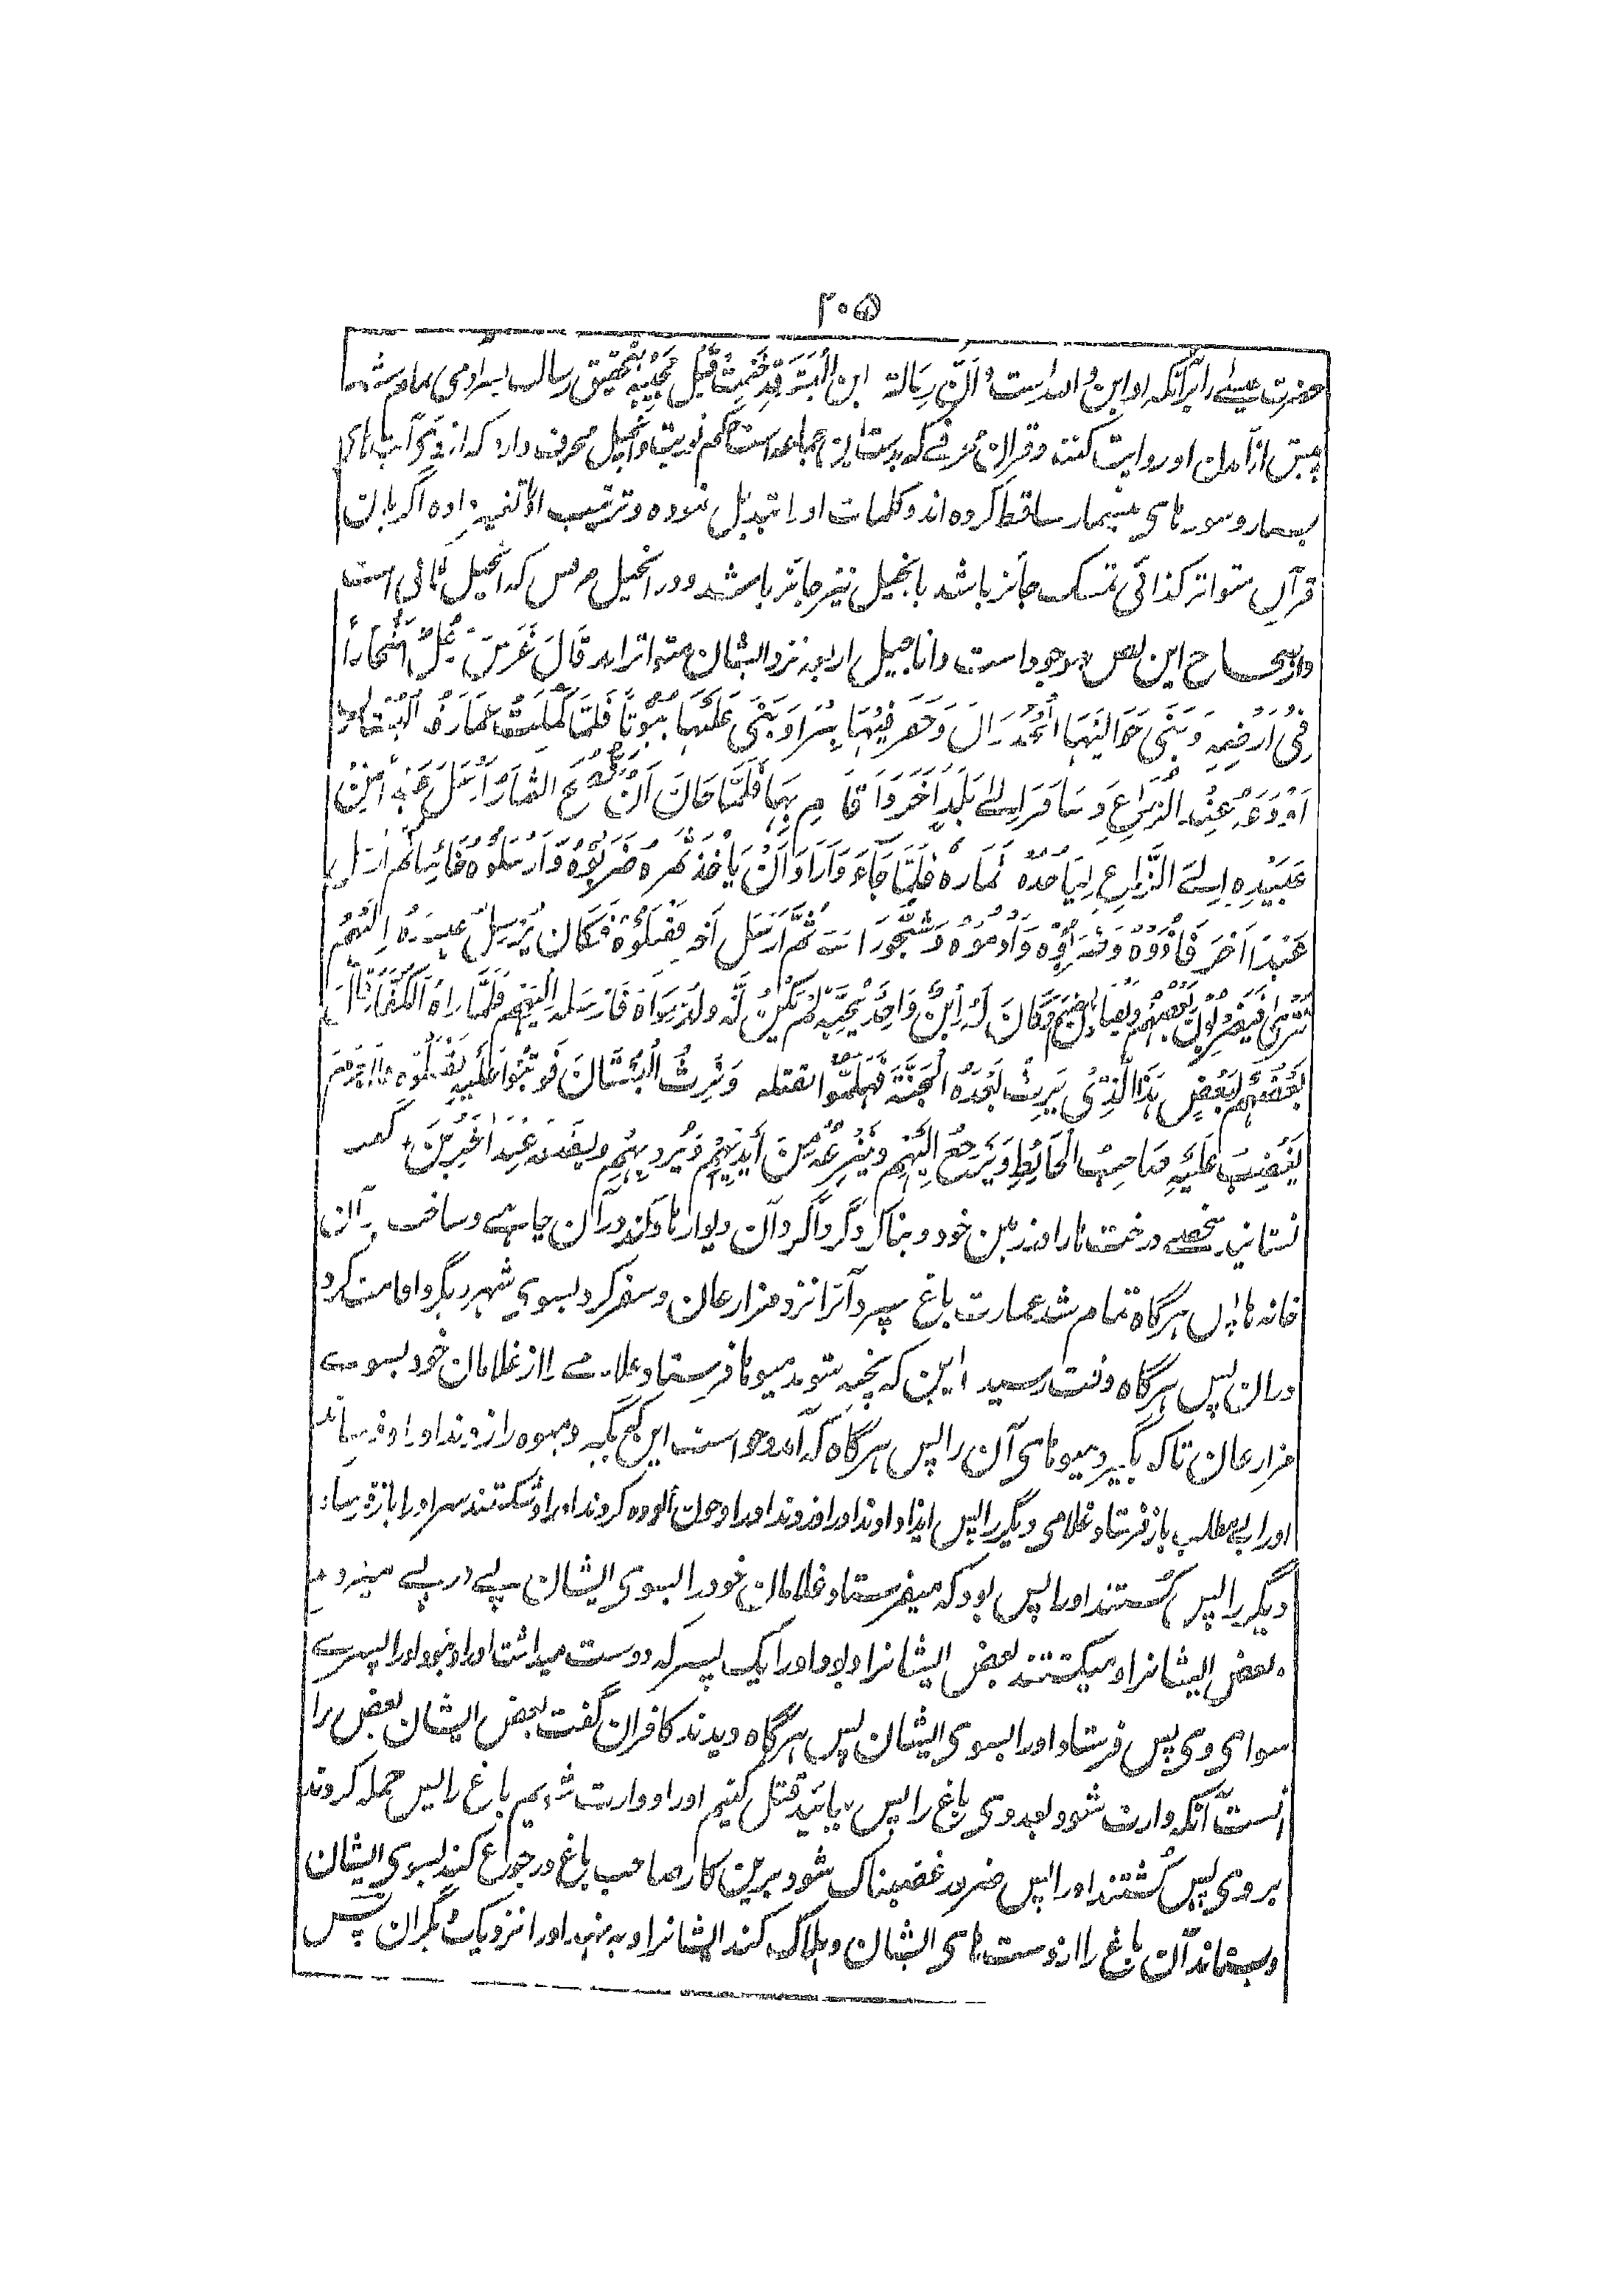 ۲۰۵
حضرت عیسے را برآنکه او ابن و الله است اَنَّ رِسَالة ابن البَتَّ قَد خُتِمَتْ قَبْلَ مَجِيْئِه بتحقیق رسالت
پیش از آمدن او روایت کنند و قرآن محرفے که بدست این جماعه است حکم توریت و انجیل محرف دارد که از وی آیتهای
بسیار و سورهای بیشمار ساقط کرده اند و کلمات او را تبدیل نموده و ترتیب او را تغییر داده اگر بآن
قرآن متواتر کذائی تمسک جائز باشد بانجیل نیز جائز باشد و در انجیل مرقس که انجیل ثانی است
این نص موجود است و اناجیل اربعه نزد ایشان متواتر اند قَالَ غَرَسَ رَجُلٌ اَشْجَاراً
فِیْ اَرْضِهِ وَبَنٰی حَوَالَيْهَا الْجُدْرَانَ وَحَفَرَ فِيْهَا بِئْرًا وَبَنٰی عَلَيْهَا بُيُوْتًا فَلَمَّا كَمُلَتْ عِمَارَةُ الْبُسْتَانِ
اَوْدَعَه عِنْدَ الزُّرَّاعِ وَسَافَرَ اِلےٰ بَلَدٍ اٰخَرَ وَاَقَامَ بِهَا فَلَمَّا حَانَ اَنْ يَنْضَحَ الثِّمَارُ اَرْسَلَ عَبْداً مِنْ
عَبِيْدِهِ اِلَے الزُّرَّاعِ لِيَاْخُذَ ثِمَارَهٗ فَلَمَّا جَآءَ وَاَرَادَ اَنْ يَاْخُذَ ثَمَرَهٗ ضَرَبُوْهُ وَاَرْسَلُوْهُ خَائِبًا ثُمَّ اَرْسَلَ
عَبْدًا اٰخَرَ فَاٰذَوْهُ وَضَرَبُوْهُ وَاَدْمَوْهُ وَشَجُّوْا رَاْسَه ثُمَّ اَرْسَلَ اٰخَر فَقَتَلُوْهُ فَكَانَ يُرْسِلُ عَبِيْدَهٗ اِلَيْهِمْ
تَتْرٰی فَيَضْرِبُوْنَ بَعْضَهُمْ وَيَقْتُلُوْنَ بَعْضَهُمْ وَكَانَ لَهٗ اِبْنٌ وَاحِدٌ يُحِبُّه لَمْ يَكُنْ لَّه وَلَدٌ سِوَاهُ فَاَرْسَلَه اِلَيْهِمْ فَلَمَّا رَاٰهُ الْكُفَّارُ قَالَ
بَعْضُهُمْ لِبَعْضٍ هٰذَا الَّذِیْ يَرِثُ بَعْدَهُ الْجَنَّةَ فَهَلُمُّوْا نقتله وَنَرِثُ الْبُسْتَانَ فَوَثَبُوْا عَلَيْهِ فَقَتَلُوْه
يَغْضَبُ عَلَيْهِ صَاحِبُ الْحَائِطِ وَيَرْجِعُ اِلَيْهِمْ وَيَنْزِعُهٗ مِنْ اَيْدِيْهِمْ وَيُرْدِيهِمْ وَيَضَعَه عِنْدَ اٰخَرِيْنَ
نشانید شخصے درخت ها را در زمین خود و بنا کرد گرداگرد آن دیوارها و کند در آن چاهے و ساخت برآن
خانه ها پس هرگاه تمام شد عمارت باغ سپرد آنرا نزد مزارعان و سفر کرد بسوی شهر دیگر و اقامت کرد
دران پس هرگاه وقت رسید این که پخته شوند میوها فرستاد غلامے را از غلامان خود بسوے
مزارعان تاکه بگیرد میوهای آن را پس هرگاه که آمد و خواست این که بگیرد میوه را زدند او را و فرستادند
اورا بے مطلب باز فرستاد غلامی دیگر را پس ایذا دادند اورا و زدند اورا و خون آلوده کردند اورا و شکستند سر اورا باز فرستاد
دیگر را پس کشتند اورا پس بود که میفرستاد غلامان خود را بسوی ایشان پے در پے میزدند
بعض ایشانرا و میکشتند بعض ایشانرا و بود اورا یک پسر که دوست میداشت اورا و نبود اورا پسرے
سوای وی پس فرستاد اورا بسوی ایشان پس هرگاه دیدند کافران گفت بعض ایشان بعض را
اینست آنکه وارث شود بعد وی باغ را پس بیائید قتل کنیم اورا و وارث شویم باغ را پس حمله کردند
بر وی پس کشتند اورا پس ضرور غضبناک شود برین کار صاحب باغ و رجوع کند بسوی ایشان
و بستاند آن باغ را از دست های ایشان و هلاک کند ایشانرا و بدهد اورا نزدیک دیگران پس